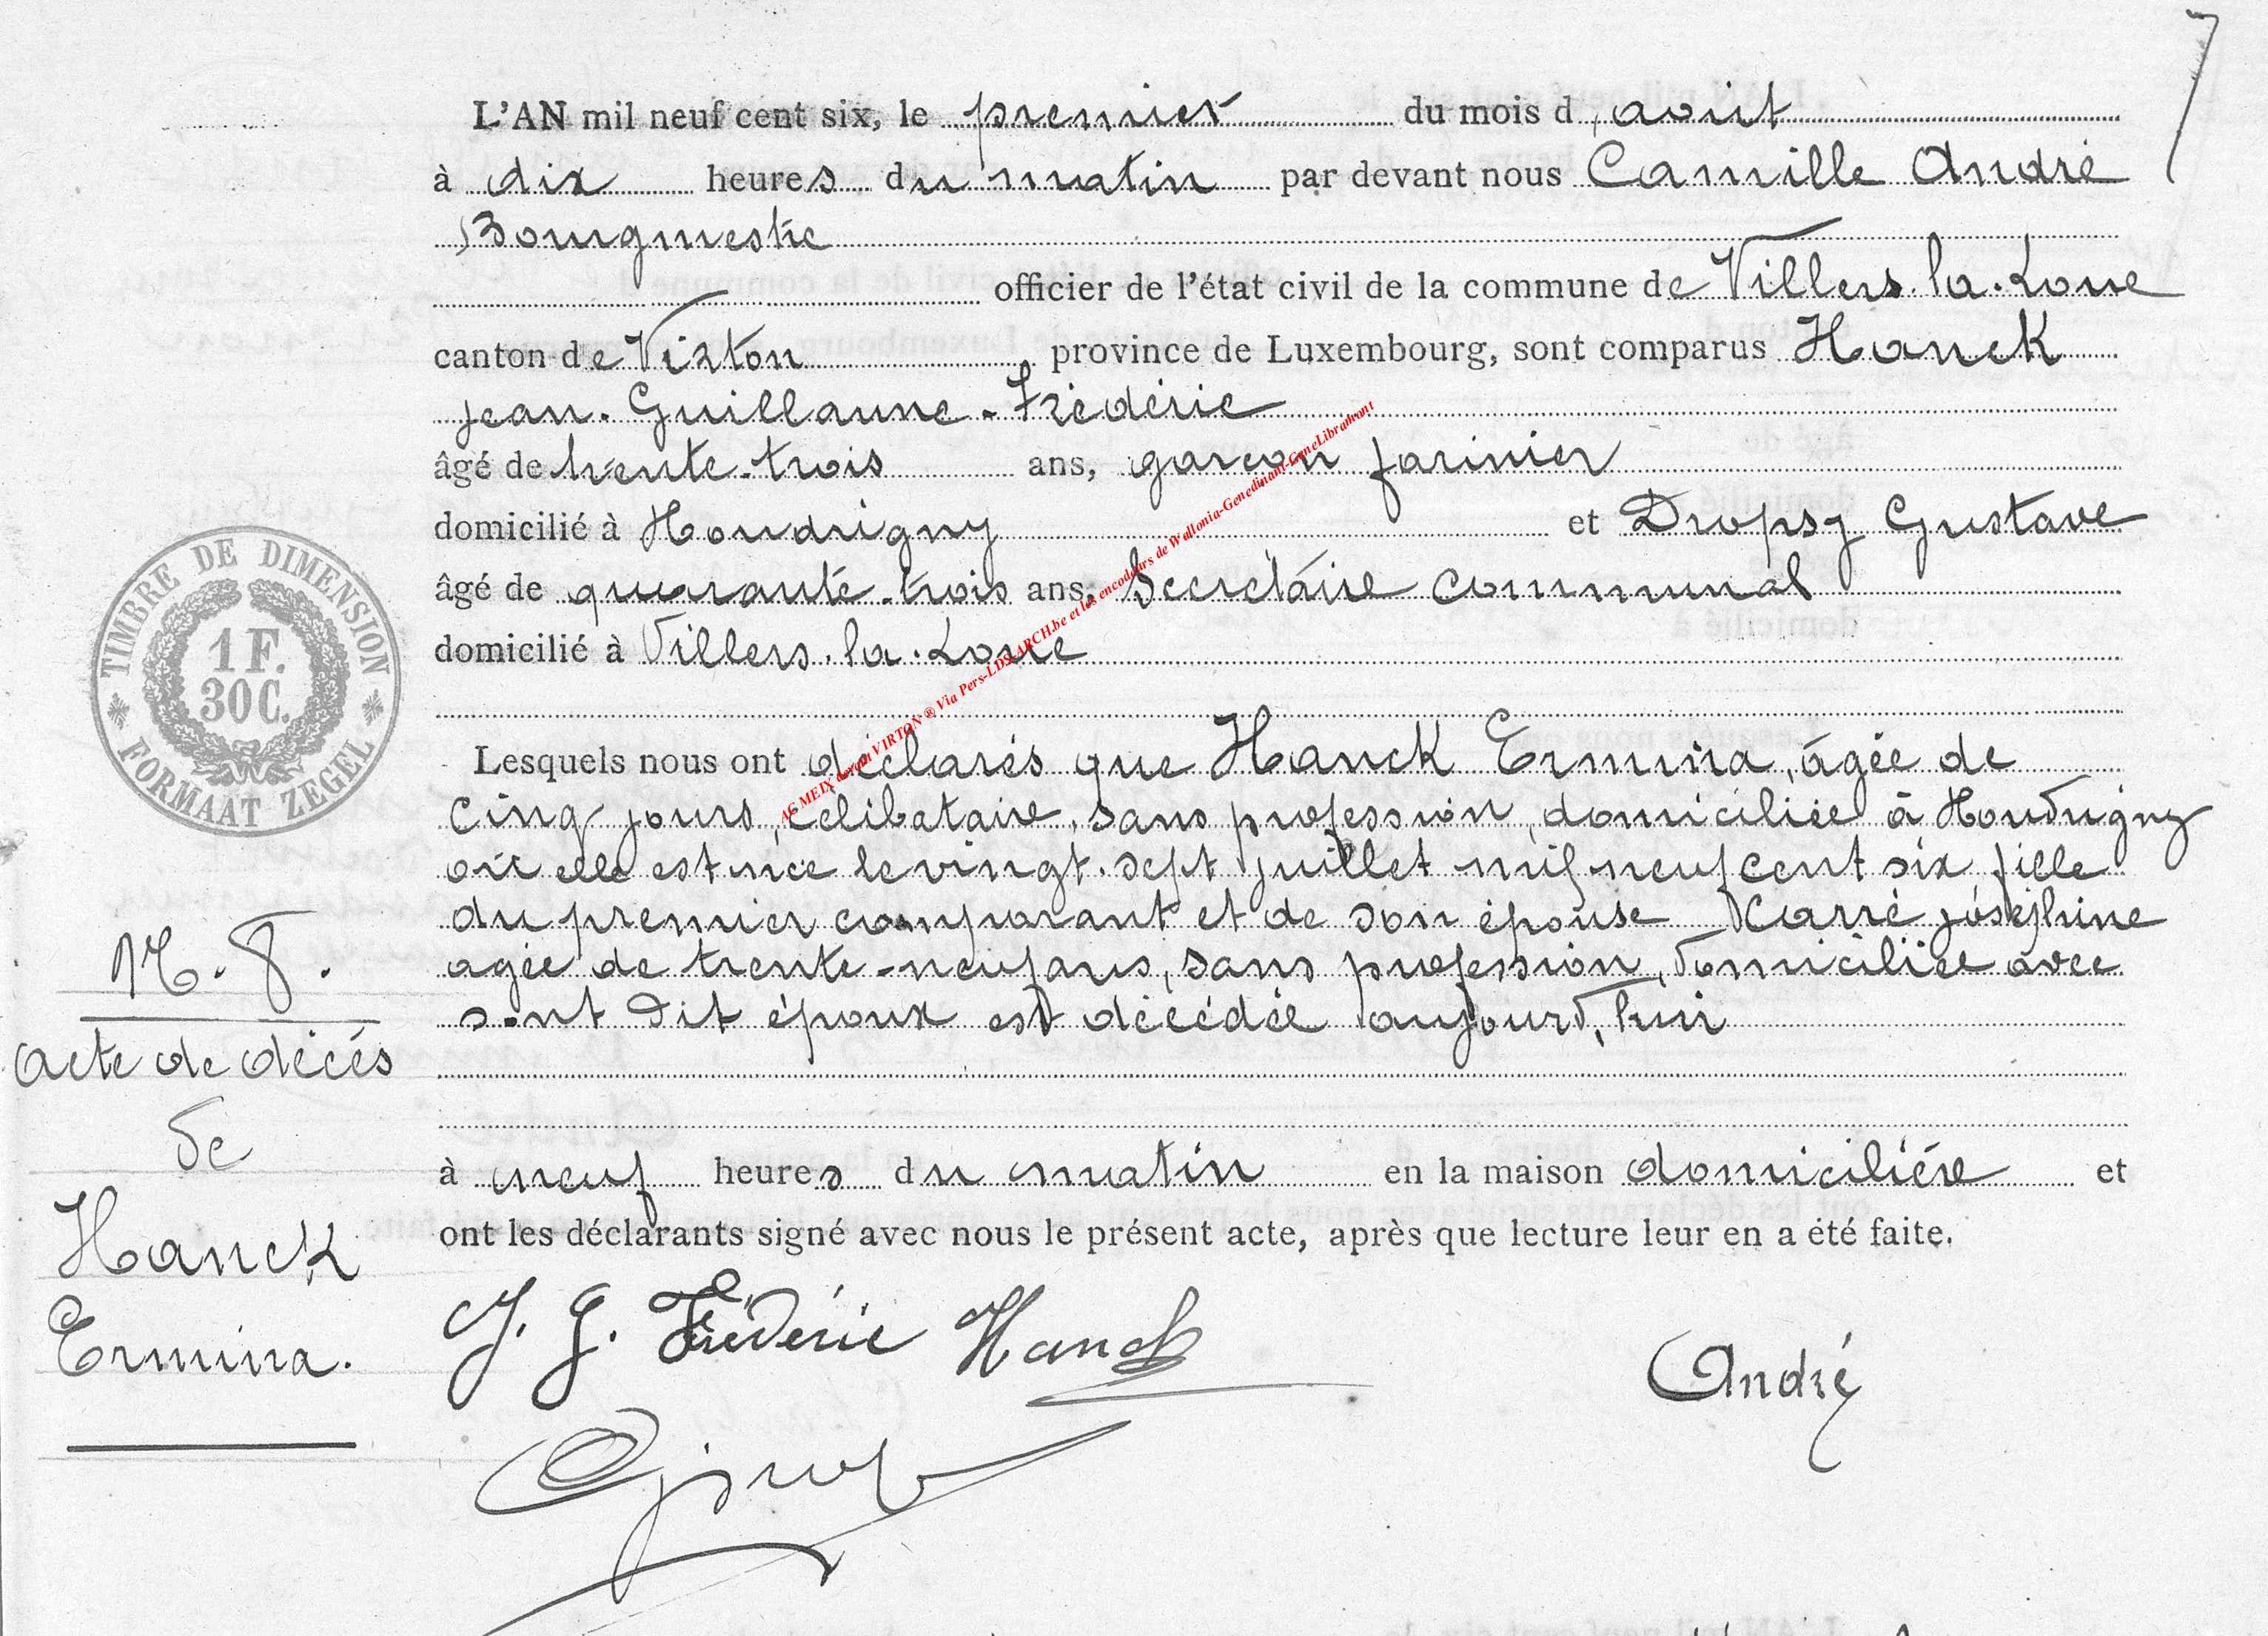 7
L'AN mil neuf cent six, le premier du mois d'août
à dix heures du matin par devant nous Camille André
Bourgmestre
officier de l'état civil de la commune de Villers-la-Loue
canton de Virton province de Luxembourg, sont comparus Hanck
Jean-Guillaume-Frédéric
âgé de trente-trois ans, garçon farinier
domicilié à Houdrigny et Dropsy Gustave
âgé de quarante-trois ans, Secrétaire communal
domicilié à Villers-la-Loue
Lesquels nous ont déclarés que Hanck Ermina, âgée de
cinq jours, célibataire, sans profession, domiciliée à Houdrigny
où elle est née le vingt-sept juillet mil neuf cent six fille
du premier comparant et de son épouse Carré Joséphine
agée de trente-neuf ans, sans profession, domiciliée avec
sont dit époux est décédée aujourd'hui
à neuf heures du matin en la maison domicilière et
ont les déclarants signé avec nous le présent acte, après que lecture leur en a été faite.
J. G. Frédéric Hanck
André
TIMBRE DE DIMENSION
1 F.
30 C.
FORMAAT ZEGEL
N. 8.
Acte de décés
de
Hanck
Ermina.
AG MEIX devant VIRTON ® Via Pers-LDS-ARCH.be et les encodeurs de Wallonia-Genedinant-GeneLibramont